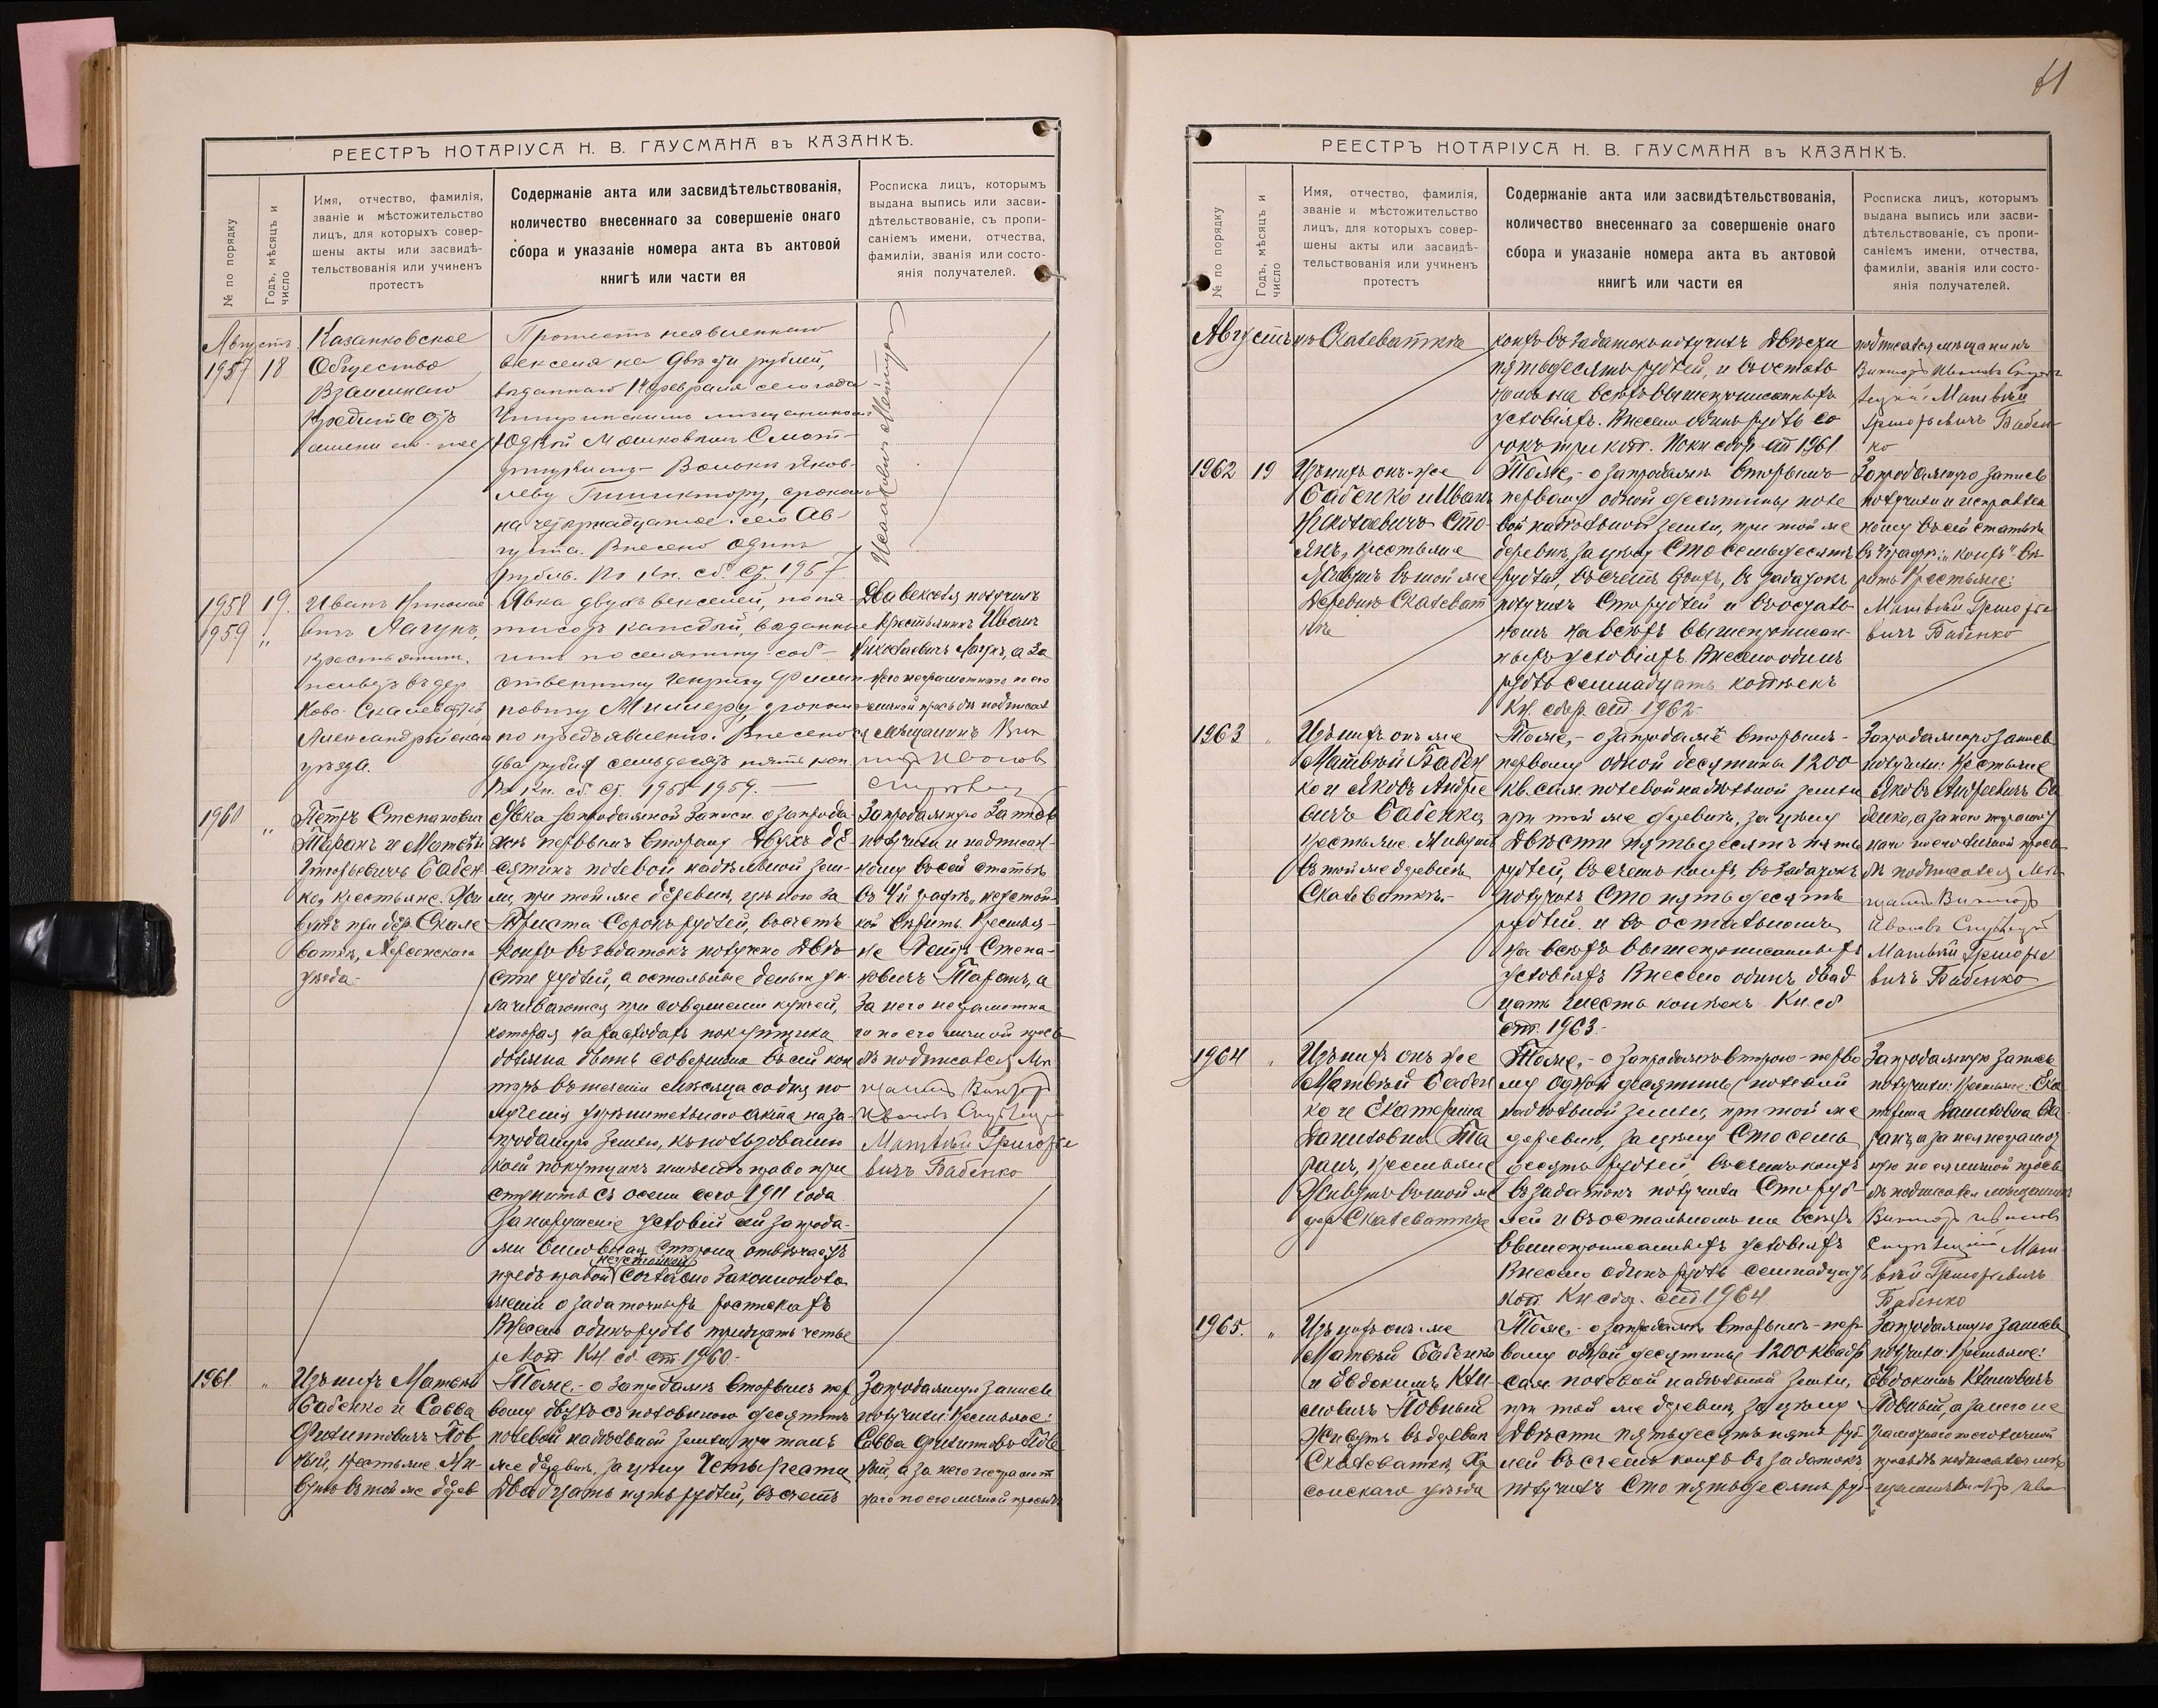 61
РЕЕСТРЪ НОТАРІУСА Н. В. ГАУСМАНА въ КАЗАНКѢ.
№ по порядку
Годъ, мѣсяцъ и
число
Имя, отчество, фамилія,
званіе и мѣстожительство
лицъ, для которыхъ совер-
шены акты или засвидѣ-
тельствованія или учиненъ
протестъ
Содержаніе акта или засвидѣтельствованія,
количество внесеннаго за совершеніе онаго
сбора и указаніе номера акта въ актовой
книгѣ или части ея
Росписка лицъ, которымъ
выдана выпись или засви-
дѣтельствованіе, съ пропи-
саніемъ имени, отчества,
фамиліи, званія или состо-
янія получателей.
Августъ
1957 18
Казанковское
Общество
Взаимнаго
Кредита
Протестъ неявленнаго
векселя на двѣсти рублей,
выданнаго февраля сего года
мѣщаниномъ
Волоки Яков-
леву срокомъ
на четырнадцатое сего Ав-
густа. Внесено одинъ
рубль. По Кн. сб. ст. 1957
1958 19.
1959 "
Иванъ Николае
вичъ Лагунъ,
крестьянинъ,
живетъ въ дер.
Ново-Скалеваткѣ,
Александрійскаго
уѣзда.
Явка двухъ векселей, по пя-
тисотъ каждый, выданные
имъ поселянину соб-
ственнику Генриху Филип
повичу Миллеру, срокомъ
по предъявленію. Внесено
два рубля семьдесятъ пять коп.
По Кн. сб. ст. 1958-1959.
Два векселя получилъ
крестьянинъ Иванъ
Николаевичъ Лагунъ, а за
него неграмотнаго по его
личной просьбѣ подписал
ся мѣщанинъ Вик
торъ Ивановъ
1960 "
Петръ Степановичъ
Таранъ и Матвѣй
Григорьевичъ Бабен
ко, крестьяне. Жи
вутъ при дер. Скале
ваткѣ, Херсонскаго
уѣзда.
Явка запродажной записи о запрода
жѣ первымъ второму двухъ де-
сятинъ полевой надѣльной зем-
ли, при той же деревнѣ, цѣною за
Триста сорокъ рублей, въ счетъ
коихъ въ задатокъ получено двѣ-
сти рублей, а остальныя деньги уп-
лачиваются при совершеніи купчей,
которая на расходахъ покупщика
должна быть совершена въ сей кон
торѣ въ теченіи мѣсяца со дня по
лученія укрѣпительнаго акта на за-
проданную землю, къ пользованію
коей покупщикъ имѣетъ право при
ступить съ осени сего 1911 года
За нарушеніе условій сей запрода-
жи виновная сторона отвѣчаетъ
неустойкой
предъ правой согласно Законополо
женія о задаточныхъ роспискахъ
Внесено одинъ рубль тридцать четы
ре коп. Кн. сб. ст. 1960.-
Запродажную запись
получили и надписан-
ному въ сей статьѣ
въ 4й графѣ „неустой-
кой" вѣрить. Крестья-
не Петръ Степа-
новичъ Таранъ, а
за него неграмотна
го по его личной прось
бѣ подписался Мѣ
щанинъ Викторъ
Ивановъ
Матвѣй Григорье
вичъ Бабенко
1961 "
Изъ нихъ Матвѣй
Бабенко и Савва
Филипповичъ Пов
ный, крестьяне. Жи-
вутъ въ той же дерев
Тоже,- о запродажѣ вторымъ пер
вому двухъ съ половиною десятинъ
полевой надѣльной земли при той
же деревнѣ, за цѣну Четыреста
двадцать пять рублей, въ счетъ
Запродажную запись
получили: Крестьяне:
Савва Филипповъ Пов
ный, а за него неграмот
наго по его личной просьбѣ
РЕЕСТРЪ НОТАРІУСА Н. В. ГАУСМАНА въ КАЗАНКѢ.
№ по порядку
Годъ, мѣсяцъ и
число
Имя, отчество, фамилія,
званіе и мѣстожительство
лицъ, для которыхъ совер-
шены акты или засвидѣ-
тельствованія или учиненъ
протестъ
Содержаніе акта или засвидѣтельствованія,
количество внесеннаго за совершеніе онаго
сбора и указаніе номера акта въ актовой
книгѣ или части ея
Росписка лицъ, которымъ
выдана выпись или засви-
дѣтельствованіе, съ пропи-
саніемъ имени, отчества,
фамиліи, званія или состо-
янія получателей.
Августъ
нѣ Скалеваткѣ
коихъ въ задатокъ получилъ двѣсти
пятьдесятъ рублей, и въ осталь
номъ на всѣхъ вышеписанныхъ
условіяхъ. Внесено одинъ рубль со
рокъ три коп. По кн. сбор. ст. 1961.
подписался мѣщанинъ
Викторъ Ивановъ
Матвѣй
Григорьевичъ Бабен-
ко
1962 19
Изъ нихъ онъ-же
Бабенко и Иванъ
Николаевичъ Сто-
янъ, крестьяне
Живутъ въ той же
деревнѣ Скалеват
кѣ
Тоже,- о запродажѣ вторымъ
первому одной десятины поле
вой надѣльной земли, при той же
деревнѣ, за цѣну Сто семьдесятъ
рублей, въ счетъ коихъ, въ задатокъ
получилъ Сто рублей и въ осталь
номъ на всѣхъ вышепрописан-
ныхъ условіяхъ Внесено одинъ
рубль семнадцать копѣекъ
Кн. сбор. ст. 1962-
Запродажную запись
получили и исправлен
ному въ сей статьѣ
въ 4 графѣ: „коихъ" вѣ-
рить Крестьяне:
Матвѣй Григорье
вичъ Бабенко
1963 "
Изъ нихъ онъ же
Матвѣй Бабен
ко и Яковъ Андре
евичъ Бабенко,
крестьяне. Живутъ
въ той же деревнѣ
Скалеваткѣ.-
Тоже,- о запродажѣ вторымъ-
первому одной десятины 1200
кв. саж. полевой надѣльной земли
при той же деревнѣ, за цѣну
Двѣсти пятьдесятъ пять
рублей, въ счетъ коихъ, въ задатокъ
получилъ Сто пятьдесятъ
рублей и въ остальномъ
на всѣхъ вышепрописанныхъ
условіяхъ Внесено одинъ двад
цать шесть копѣекъ. Кн. сб
ст. 1963.-
Запродажную запись
получили: Крестьяне
Яковъ Андреевичъ Ба
бенко, а за него неграмот
наго по его личной прось
бѣ подписался Мѣ-
щанинъ Викторъ
Ивановъ
Матвѣй Григорье
вичъ Бабенко
1964 "
Изъ нихъ онъ же
Матвѣй Бабен
ко и Екатерина
Даниловна Та
ранъ, крестьяне
Живутъ въ той же
дер. Скалеваткѣ
Тоже,- о запродажѣ второю-перво
му одной десятины полевой
надѣльной земли, при той же
деревнѣ, за цѣну Сто семь
десятъ рублей, въ счетъ коихъ
въ задатокъ получила Сто руб-
лей и въ остальномъ на всѣхъ
вышепрописанныхъ условіяхъ
Внесено одинъ рубль семнадцать
коп. Кн. сбор. ст. 1964
Запродажную запись
получили: Крестьяне: Ека
терина Даниловна Та
ранъ, а за нея неграмот
ную по ея личной прось
бѣ подписался мѣщанинъ
Викторъ Ивановъ
Мат
вѣй Григорьевичъ
Бабенко
1965. "
Изъ нихъ онъ-же
Матвѣй Бабенко
и Евдокимъ Кли
мовичъ Повный
Живутъ въ деревнѣ
Скалеваткѣ, Хер
сонскаго уѣзда
Тоже,- о запродажѣ вторымъ-пер
вому одной десятины 1200 квадр
саж. полевой надѣльной земли,
при той же деревнѣ, за цѣну
Двѣсти пятьдесятъ пять руб-
лей въ счетъ коихъ въ задатокъ
получилъ Сто пятьдесятъ руб-
Запродажную запись
получили: Крестьяне:
Евдокимъ Климовичъ
Повный, а за него не
грамотнаго по его личной
просьбѣ подписался мѣ
щанинъ Викторъ Ива